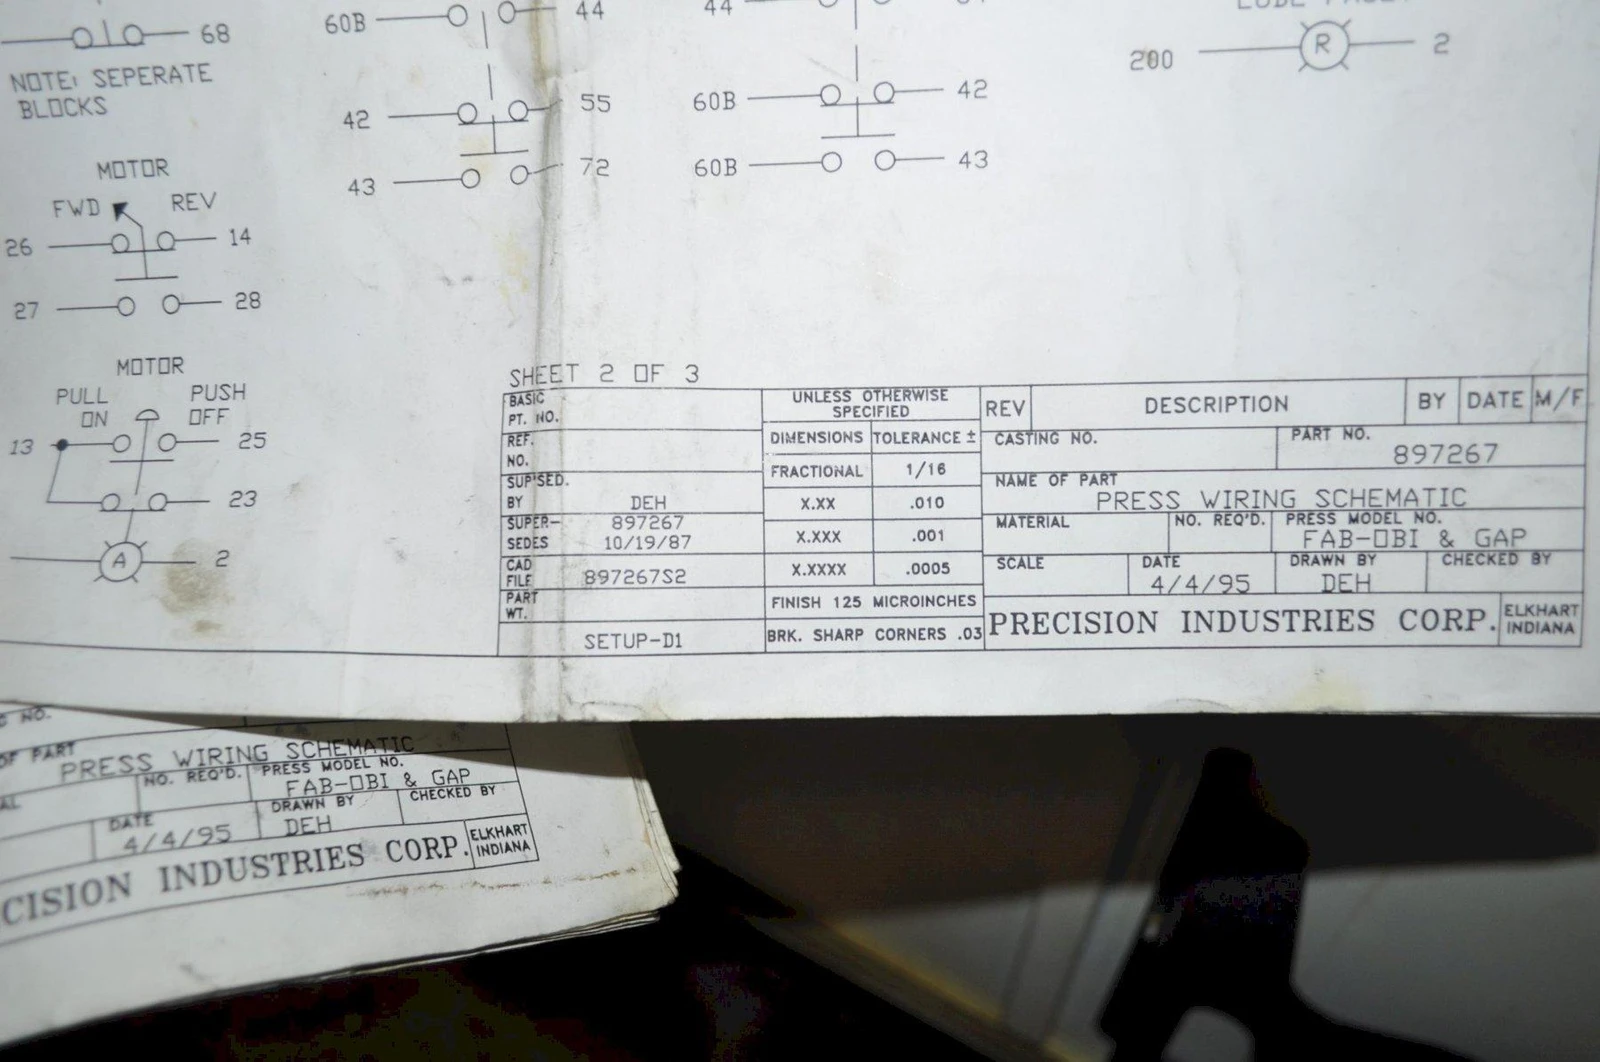 68
60B 44
44
NOTE: SEPERATE
BLOCKS
200 R 2
42 55
60B 42
43 72
60B 43
MOTOR
FWD REV
26 14
27 28
MOTOR
PULL PUSH
ON OFF
13 25
23
A 2
SHEET 2 OF 3
BASIC
PT. NO.
REF.
NO.
SUP'SED.
BY DEH
SUPER- 897267
SEDES 10/19/87
CAD
FILE 897267S2
PART
WT.
SETUP-D1
UNLESS OTHERWISE
SPECIFIED
DIMENSIONS TOLERANCE ±
FRACTIONAL 1/16
X.XX .010
X.XXX .001
X.XXXX .0005
FINISH 125 MICROINCHES
BRK. SHARP CORNERS .03
REV DESCRIPTION BY DATE M/F
CASTING NO. PART NO.
897267
NAME OF PART
PRESS WIRING SCHEMATIC
MATERIAL NO. REQ'D. PRESS MODEL NO.
FAB-OBI & GAP
SCALE DATE DRAWN BY CHECKED BY
4/4/95 DEH
PRECISION INDUSTRIES CORP. ELKHART
INDIANA
NO.
OF PART
PRESS WIRING SCHEMATIC
AL NO. REQ'D. PRESS MODEL NO.
FAB-OBI & GAP
DATE DRAWN BY CHECKED BY
4/4/95 DEH
CISION INDUSTRIES CORP. ELKHART
INDIANA